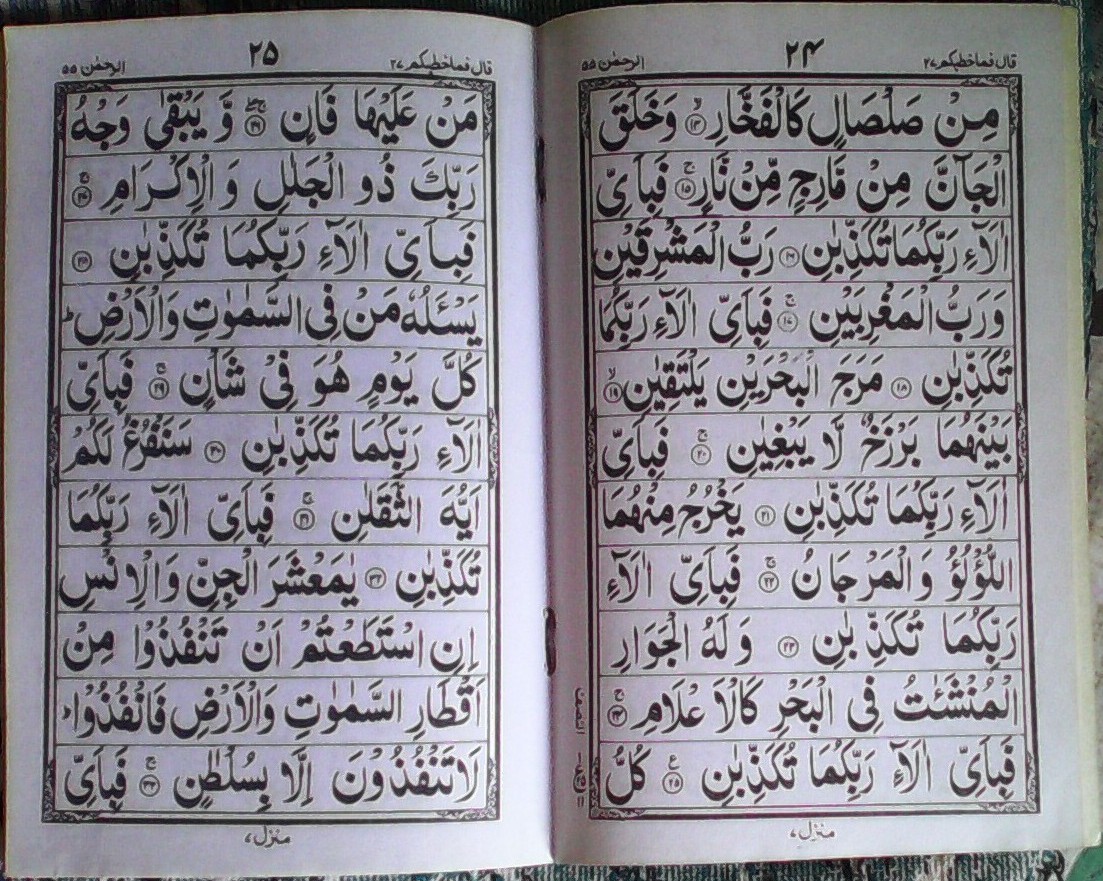 قال فماخطبكم ٢٧ ٢٤ الرحمٰن ٥٥
مِنْ صَلْصَالٍ كَالْفَخَّارِ ۙ﴿۱۴﴾ وَخَلَقَ
الْجَآنَّ مِنْ مَّارِجٍ مِّنْ نَّارٍ ۚ﴿۱۵﴾ فَبِاَىِّ
اٰلَآءِ رَبِّكُمَا تُكَذِّبٰنِ ﴿۱۶﴾ رَبُّ الْمَشْرِقَيْنِ
وَرَبُّ الْمَغْرِبَيْنِ ۚ﴿۱۷﴾ فَبِاَىِّ اٰلَآءِ رَبِّكُمَا
تُكَذِّبٰنِ ﴿۱۸﴾ مَرَجَ الْبَحْرَيْنِ يَلْتَقِيٰنِ ۙ﴿۱۹﴾
بَيْنَهُمَا بَرْزَخٌ لَّا يَبْغِيٰنِ ۚ﴿۲۰﴾ فَبِاَىِّ
اٰلَآءِ رَبِّكُمَا تُكَذِّبٰنِ ﴿۲۱﴾ يَخْرُجُ مِنْهُمَا
اللُّؤْلُؤُ وَالْمَرْجَانُ ۚ﴿۲۲﴾ فَبِاَىِّ اٰلَآءِ
رَبِّكُمَا تُكَذِّبٰنِ ﴿۲۳﴾ وَلَهُ الْجَوَارِ
الْمُنْشَئٰتُ فِى الْبَحْرِ كَالْاَعْلَامِ ۚ﴿۲۴﴾
فَبِاَىِّ اٰلَآءِ رَبِّكُمَا تُكَذِّبٰنِ ۧ﴿۲۵﴾ كُلُّ
منزل ٧
قال فماخطبكم ٢٧ ٢٥ الرحمٰن ٥٥
مَنْ عَلَيْهَا فَانٍ ۚۖ﴿۲۶﴾ وَّ يَبْقٰى وَجْهُ
رَبِّكَ ذُو الْجَلٰلِ وَ الْاِكْرَامِ ۚ﴿۲۷﴾
فَبِاَىِّ اٰلَآءِ رَبِّكُمَا تُكَذِّبٰنِ ﴿۲۸﴾
يَسْئَلُهٗ مَنْ فِى السَّمٰوٰتِ وَالْاَرْضِ ؕ
كُلَّ يَوْمٍ هُوَ فِىْ شَاْنٍ ۚ﴿۲۹﴾ فَبِاَىِّ
اٰلَآءِ رَبِّكُمَا تُكَذِّبٰنِ ﴿۳۰﴾ سَنَفْرُغُ لَكُمْ
اَيُّهَ الثَّقَلٰنِ ۚ﴿۳۱﴾ فَبِاَىِّ اٰلَآءِ رَبِّكُمَا
تُكَذِّبٰنِ ﴿۳۲﴾ يٰمَعْشَرَ الْجِنِّ وَالْاِنْسِ
اِنِ اسْتَطَعْتُمْ اَنْ تَنْفُذُوْا مِنْ
اَقْطَارِ السَّمٰوٰتِ وَالْاَرْضِ فَانْفُذُوْا ؕ
لَا تَنْفُذُوْنَ اِلَّا بِسُلْطٰنٍ ۚ﴿۳۳﴾ فَبِاَىِّ
منزل ٧